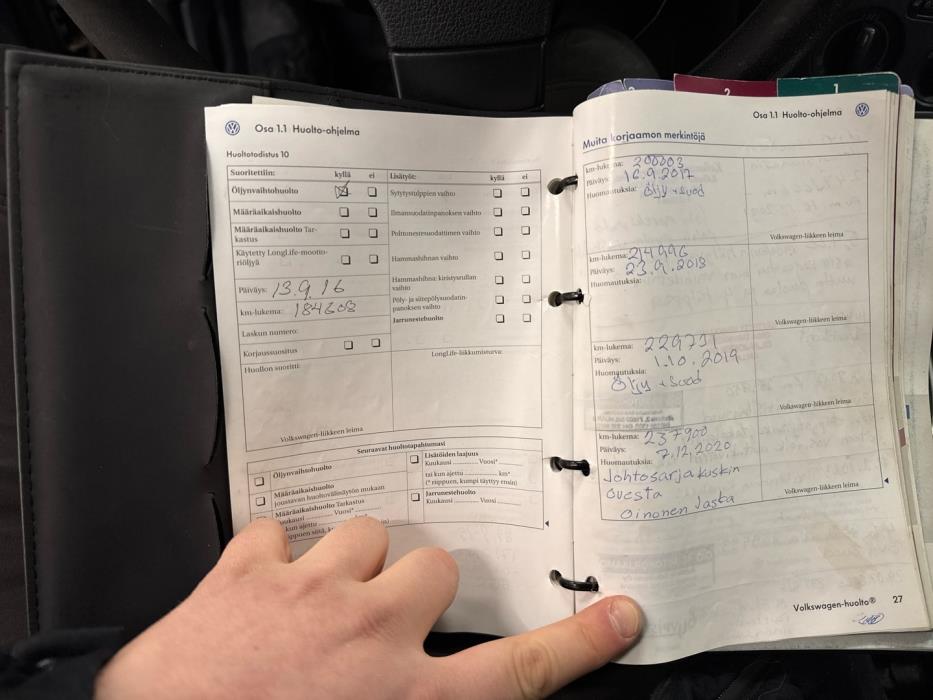 Osa 1.1 Huolto-ohjelma
Huoltotodistus 10
Suoritettiin: kyllä ei
Öljynvaihtohuolto
Määräaikaishuolto
Määräaikaishuolto Tar-
kastus
Käytetty LongLife-mootto-
riöljyä
Päiväys: 13.9.16
km-lukema: 184608
Laskun numero:
Korjaussuositus
Huollon suoritti:
Volkswagen-liikkeen leima
Lisätyöt: kyllä ei
Sytytystulppien vaihto
Ilmansuodatinpanoksen vaihto
Polttonestesuodattimen vaihto
Hammashihnan vaihto
Hammashihna: kiristysrullan
vaihto
Pöly- ja siitepölysuodatin-
panoksen vaihto
Jarrunestehuolto
LongLife-liikkumisturva:
Seuraavat huoltotapahtumasi
Öljynvaihtohuolto
Määräaikaishuolto
Joustavan huoltovälinäytön mukaan
Määräaikaishuolto Tarkastus
Vuosi*
kun ajettu
Lisätöiden laajuus
Kuukausi Vuosi*
tai kun ajettu km*
(* riippuen, kumpi täyttyy ensin)
Jarrunestehuolto
Kuukausi Vuosi
2 1
Osa 1.1 Huolto-ohjelma
Muita korjaamon merkintöjä
km-lukema: 200003
Päiväys: 16.9.2017
Huomautuksia: Öljy + suod
Volkswagen-liikkeen leima
km-lukema: 214996
Päiväys: 23.9.2018
Huomautuksia:
Volkswagen-liikkeen leima
km-lukema: 229731
Päiväys: 1.10.2019
Huomautuksia:
Öljy + Suod
Volkswagen-liikkeen leima
km-lukema: 237900
Päiväys: 7.12.2020
Huomautuksia:
Johtosarja kuskin
ovesta
Oinonen Jaska
Volkswagen-liikkeen leima
Volkswagen-huolto® 27